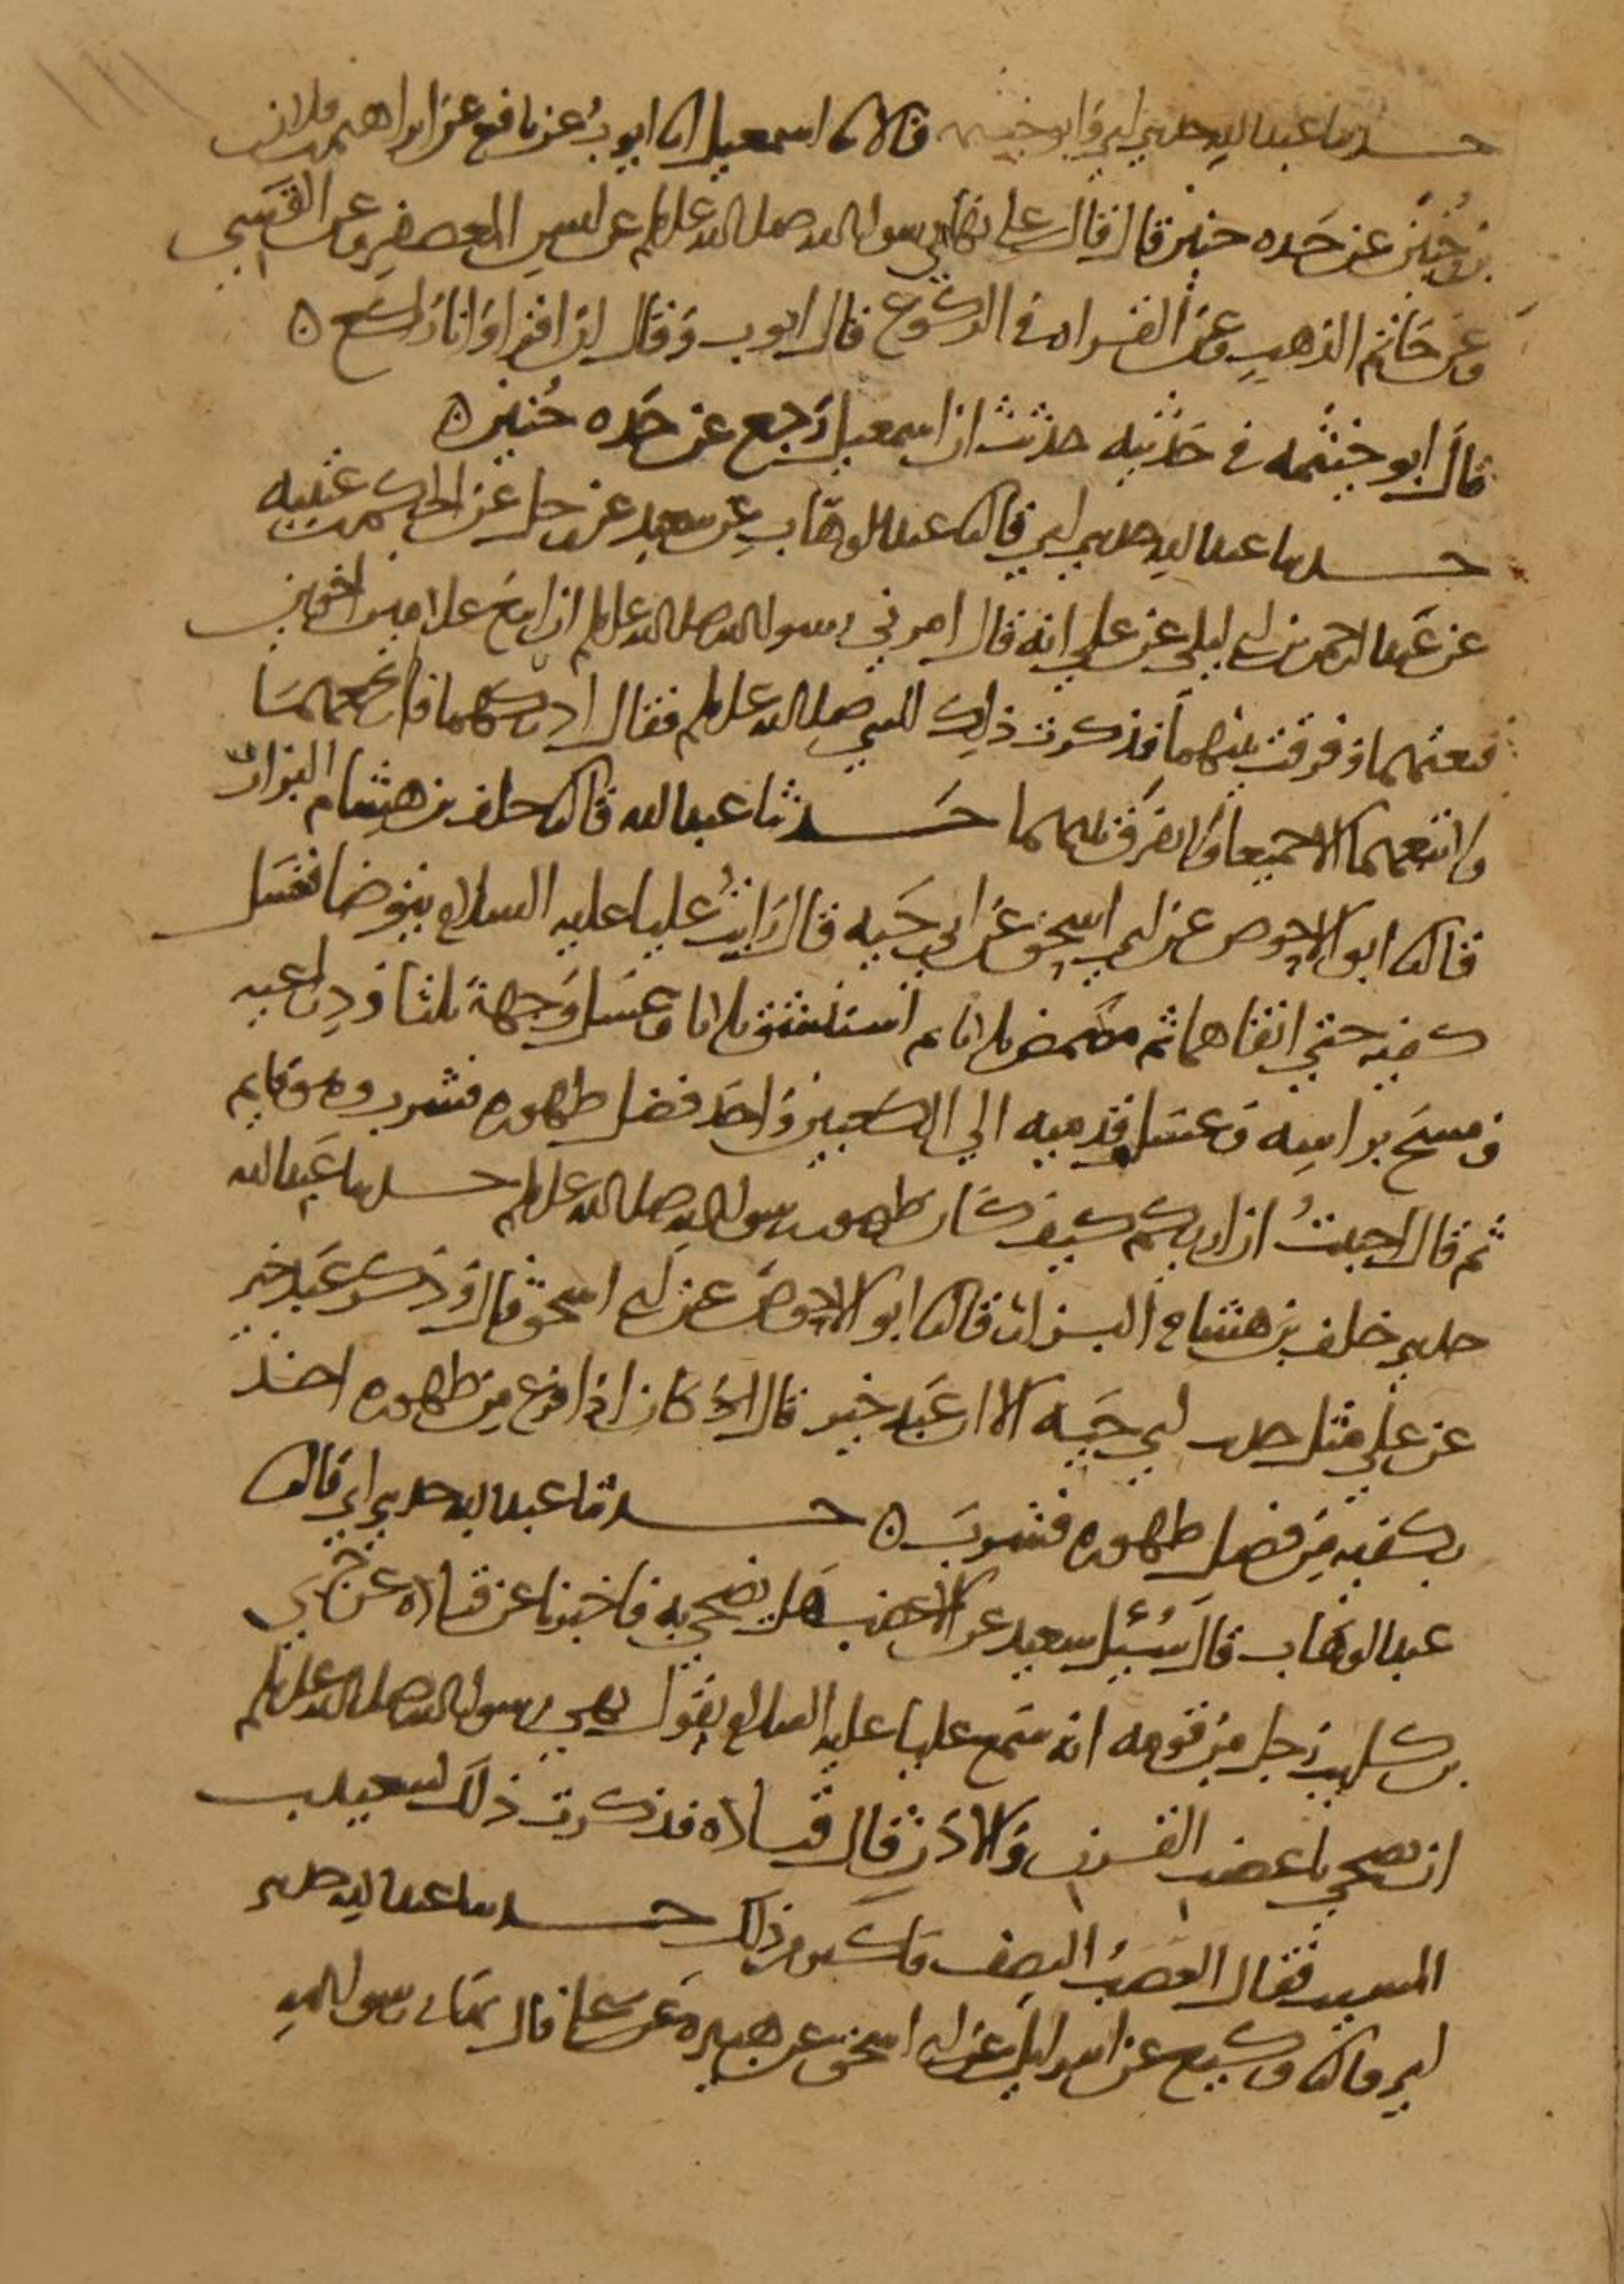 حدثنا عبد الله حدثني ابي وابو خيثمه قالا نا اسمعيل انا ايوب عن نافع عن ابراهيم بن فلان
بن حُنين عن جَده حنين قال قال علي نهاني رسول الله صلى الله عليه وسلم عن لبس المعصفر وعن القَسي
وعن خاتم الذهب وعن القراه في الركوع قال ايوب وقال ان اقرا وانا راكع ه
قال ابو خيثمه في حَديثه حدثت ان اسمعيل رَجع عن جَده حُنين ه
حدثنا عبد الله حدثني ابي قال نا عبد الوهاب عن سعيد عن رجل عن الحكم بن عتيبه
عن عبد الرحمن بن ابي ليلى عن علي انه قال امرني رسول الله صلى الله عليه وسلم ان ابيع غلامين اخوين
فبعتهما وفرقت بينهما فذكرت ذلك للنبي صلى الله عليه وسلم فقال ادركهما فارتجعهما
ولا تبعهما الا جميعا ولا تفرق بينهما حَدثنا عبد الله قال نا خلف بن هشام البزار
قال نا ابو الاحوص عن ابي اسحق عن ابي حَيه قال رَايتُ عليا عليه السلام يتوضا فغسَل
كفيه حتى انقاهما ثم مضمض ثلاثا ثم استنشق ثلاثا وغسَل وَجهه ثلثا وذراعيه
ومسَح براسِه وغسَل قدميه الي الكعبين وَاخذ فضل طهوره فشرب وهو قايم
ثم قال احببتُ ان اريكم كيف كان طهور رسول الله صلى الله عليه وسلم حدثنا عَبد الله
حدثني خلف بن هشام البزار قال نا ابو الاحوص عن ابي اسحق قال وَذكر عَبد خير
عن علي مثل حديث ابي حَيه الا ان عَبد خير قال كان اذا فرغ من طهوره اخذ
بكفيه مِن فضل طهوره فشرب ه حدثنا عبد الله حدثني ابي قال نا
عبد الوهاب قال سُئِل سعيد عن الاعضب هَل يضحي به فاخبرنا عن قتاده عن جُري
بن كليب رَجل من قومه انه سَمع عليا عليه السلام يقول نهي رسول الله صلى الله عليه وسلم
ان يضحي باعضب القرن وَالاذن قال قتاده فذكرت ذلك لسعيد بن
المسيب فقال العَضبُ النِصف فاكثر من ذلك حدثنا عبد الله حدثني
ابي قال نا وكيع عن اسرايل عن ابي اسحق عن هبيره عن علي قال نهاني رسول الله